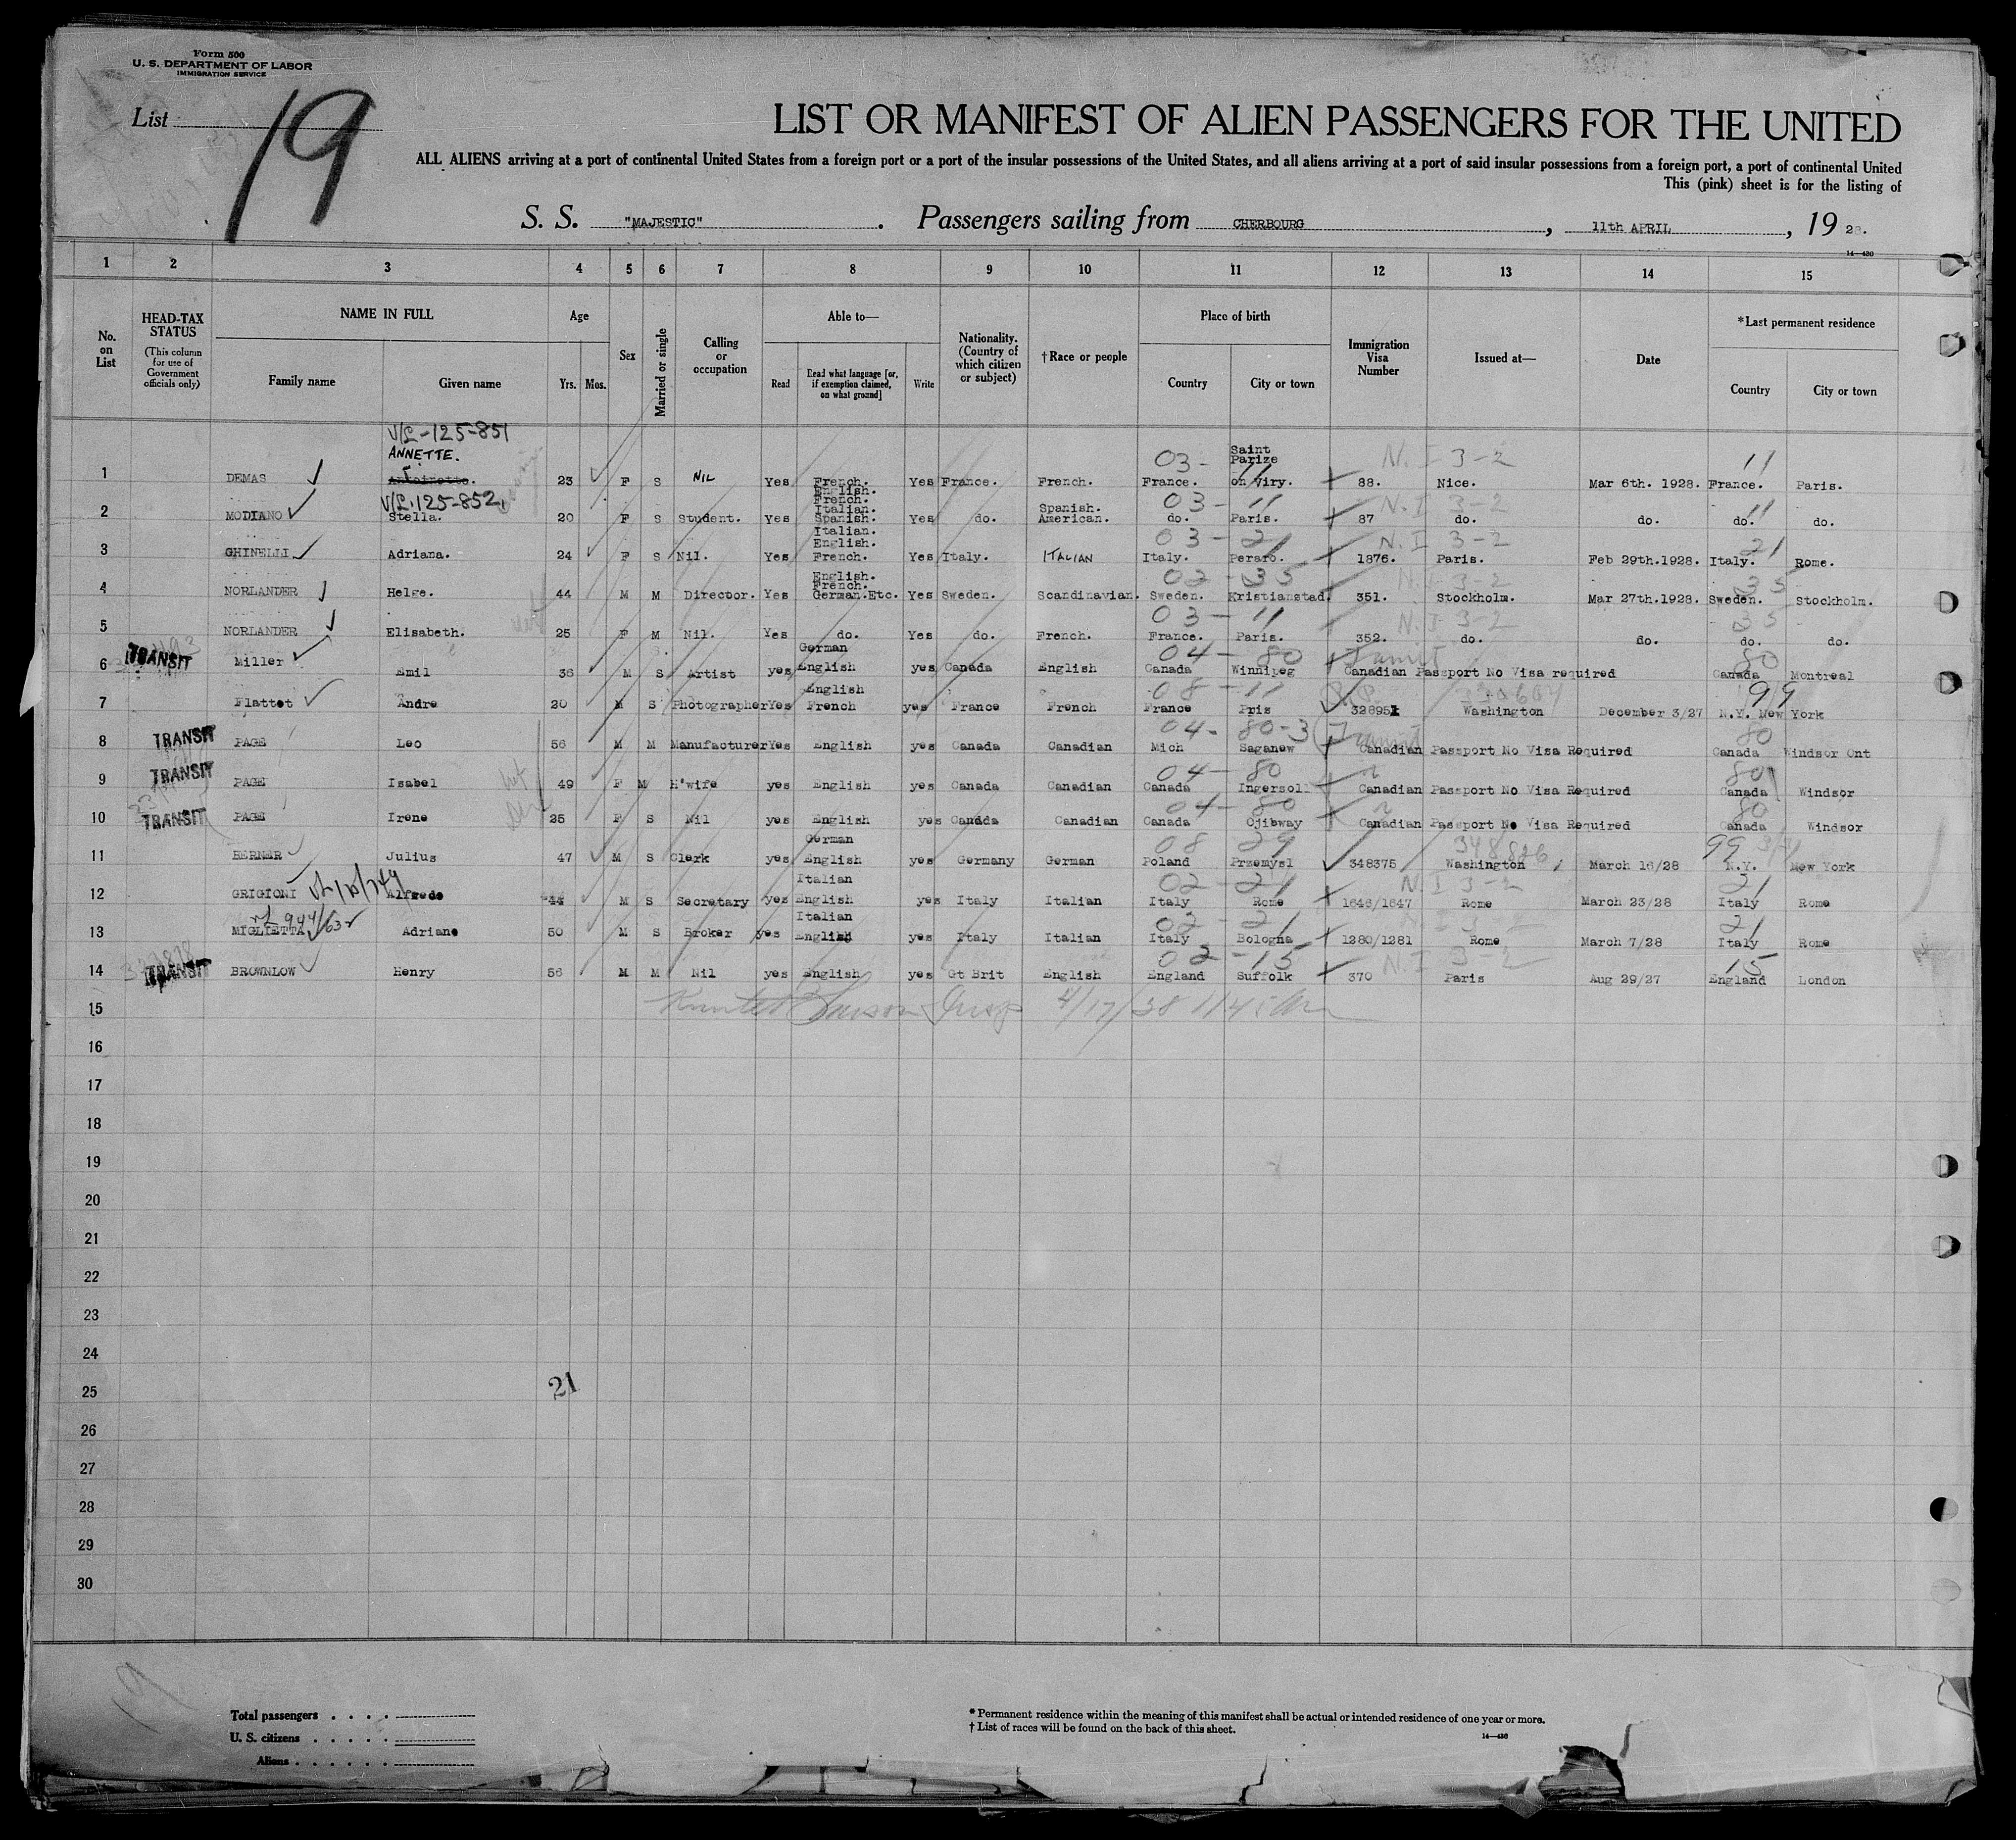 Form 500
U. S. DEPARTMENT OF LABOR
IMMIGRATION SERVICE
List 19
LIST OR MANIFEST OF ALIEN PASSENGERS FOR THE UNITED
ALL ALIENS arriving at a port of continental United States from a foreign port or a port of the insular possessions of the United States, and all aliens arriving at a port of said insular possessions from a foreign port, a port of continental United
This (pink) sheet is for the listing of
S. S. "MAJESTIC". Passengers sailing from CHERBOURG, 11th APRIL, 19 28.
14—430
1 2 3 4 5 6 7 8 9 10 11 12 13 14 15
No. on List
HEAD-TAX STATUS
(This column for use of Government officials only)
NAME IN FULL
Family name Given name
Age
Yrs. Mos.
Sex
Married or single
Calling or occupation
Able to—
Read Read what language [or, if exemption claimed, on what ground] Write
Nationality. (Country of which citizen or subject)
†Race or people
Place of birth
Country City or town
Immigration Visa Number
Issued at—
Date
*Last permanent residence
Country City or town
V/L-125-851
ANNETTE.
03- 11 N. I 3-2 11
1 DEMAS Antoinette. 23 F S NIL Yes French. English. Yes France. French. France. Saint Parize on Viry. 88. Nice. Mar 6th. 1928. France. Paris.
V/L.125-852
03-11 N. I 3-2 11
2 MODIANO Stella. 20 F S Student. Yes French. Italian. Spanish. Yes do. Spanish. American. do. Paris. 87 do. do. do. do.
03-21 N. I 3-2 21
3 GHINELLI Adriana. 24 F S Nil. Yes Italian. English. French. Yes Italy. ITALIAN Italy. Peraro. 1876. Paris. Feb 29th.1928. Italy. Rome.
02-35 N. I 3-2 35
4 NORLANDER Helge. 44 M M Director. Yes English. French. German.Etc. Yes Sweden. Scandinavian. Sweden. Kristianstad. 351. Stockholm. Mar 27th.1928. Sweden. Stockholm.
03-11 N. I 3-2 35
5 NORLANDER Elisabeth. 25 F M Nil. Yes do. Yes do. French. France. Paris. 352. do. do. do. do.
04-80 Transit 80
6 TRANSIT Miller Emil 36 M S Artist yes German English yes Canada English Canada Winnipeg Canadian Passport No Visa required Canada Montreal
08-11 99
7 Flattot Andre 20 M S Photographer Yes English French yes France French France Pris 328951 Washington December 3/27 N.Y. New York
04-80-3 Transit 80
8 TRANSIT PAGE Leo 56 M M Manufacturer Yes English yes Canada Canadian Mich Saganew Canadian Passport No Visa Required Canada Windsor Ont
04-80 80
9 TRANSIT PAGE Isabel 49 F M H'wife yes English yes Canada Canadian Canada Ingersoll Canadian Passport No Visa Required Canada Windsor
04-80 80
10 TRANSIT PAGE Irene 25 F S Nil yes English yes Canada Canadian Canada Ojibway Canadian Passport No Visa Required Canada Windsor
08 29 348826 99
11 BERNER Julius 47 M S Clerk yes German English yes Germany German Poland Przemysl 348375 Washington March 16/28 N.Y. New York
02-21 N. I 3-2 21
12 GRIGIONI Alfredo 44 M S Secretary yes Italian English yes Italy Italian Italy Rome 1646/1647 Rome March 23/28 Italy Rome
02-21 21
13 MIGLIETTA Adriano 50 M S Broker yes Italian English yes Italy Italian Italy Bologna 1280/1281 Rome March 7/28 Italy Rome
02-15 N I 3-2 15
14 TRANSIT BROWNLOW Henry 56 M M Nil yes English yes Gt Brit English England Suffolk 370 Paris Aug 29/27 England London
15
16
17
18
19
20
21
22
23
24
25 21
26
27
28
29
30
19
Total passengers . . . .
U. S. citizens . . . . .
Aliens . . . . . .
* Permanent residence within the meaning of this manifest shall be actual or intended residence of one year or more.
† List of races will be found on the back of this sheet.
14—430